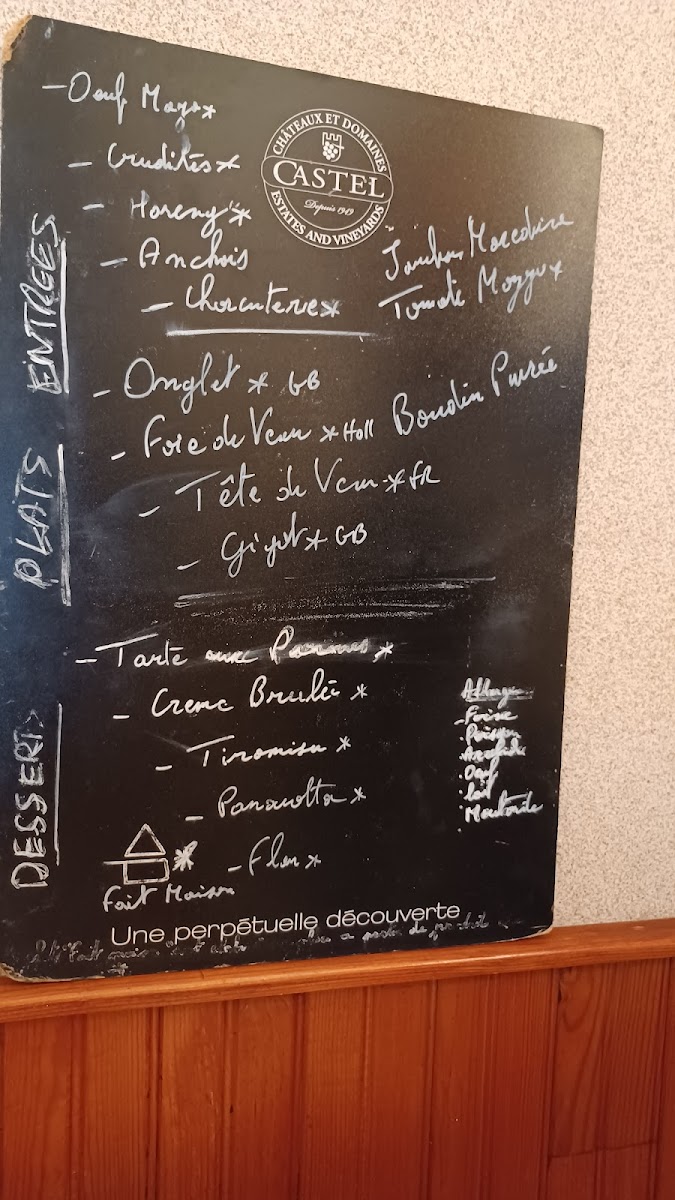 ENTREES
- Oeuf Mayo *
- Crudités *
- Hareng *
- Anchois
- Charcuterie *
CHÂTEAUX ET DOMAINES
CASTEL
Depuis 1949
ESTATES AND VINEYARDS
Jambon
Tomate Mozza *
PLATS
- Onglet * GB
- Foie de Veau * Holl
Boudin Purée
- Tête de Veau * FR
- Gigot * GB
DESSERTS
- Tarte aux Pommes *
- Creme Brulée *
- Tiramisu *
- Panacotta *
- Flan *
*
Fait Maison
Poisson
Oeuf
Lait
Moutarde
Une perpétuelle découverte